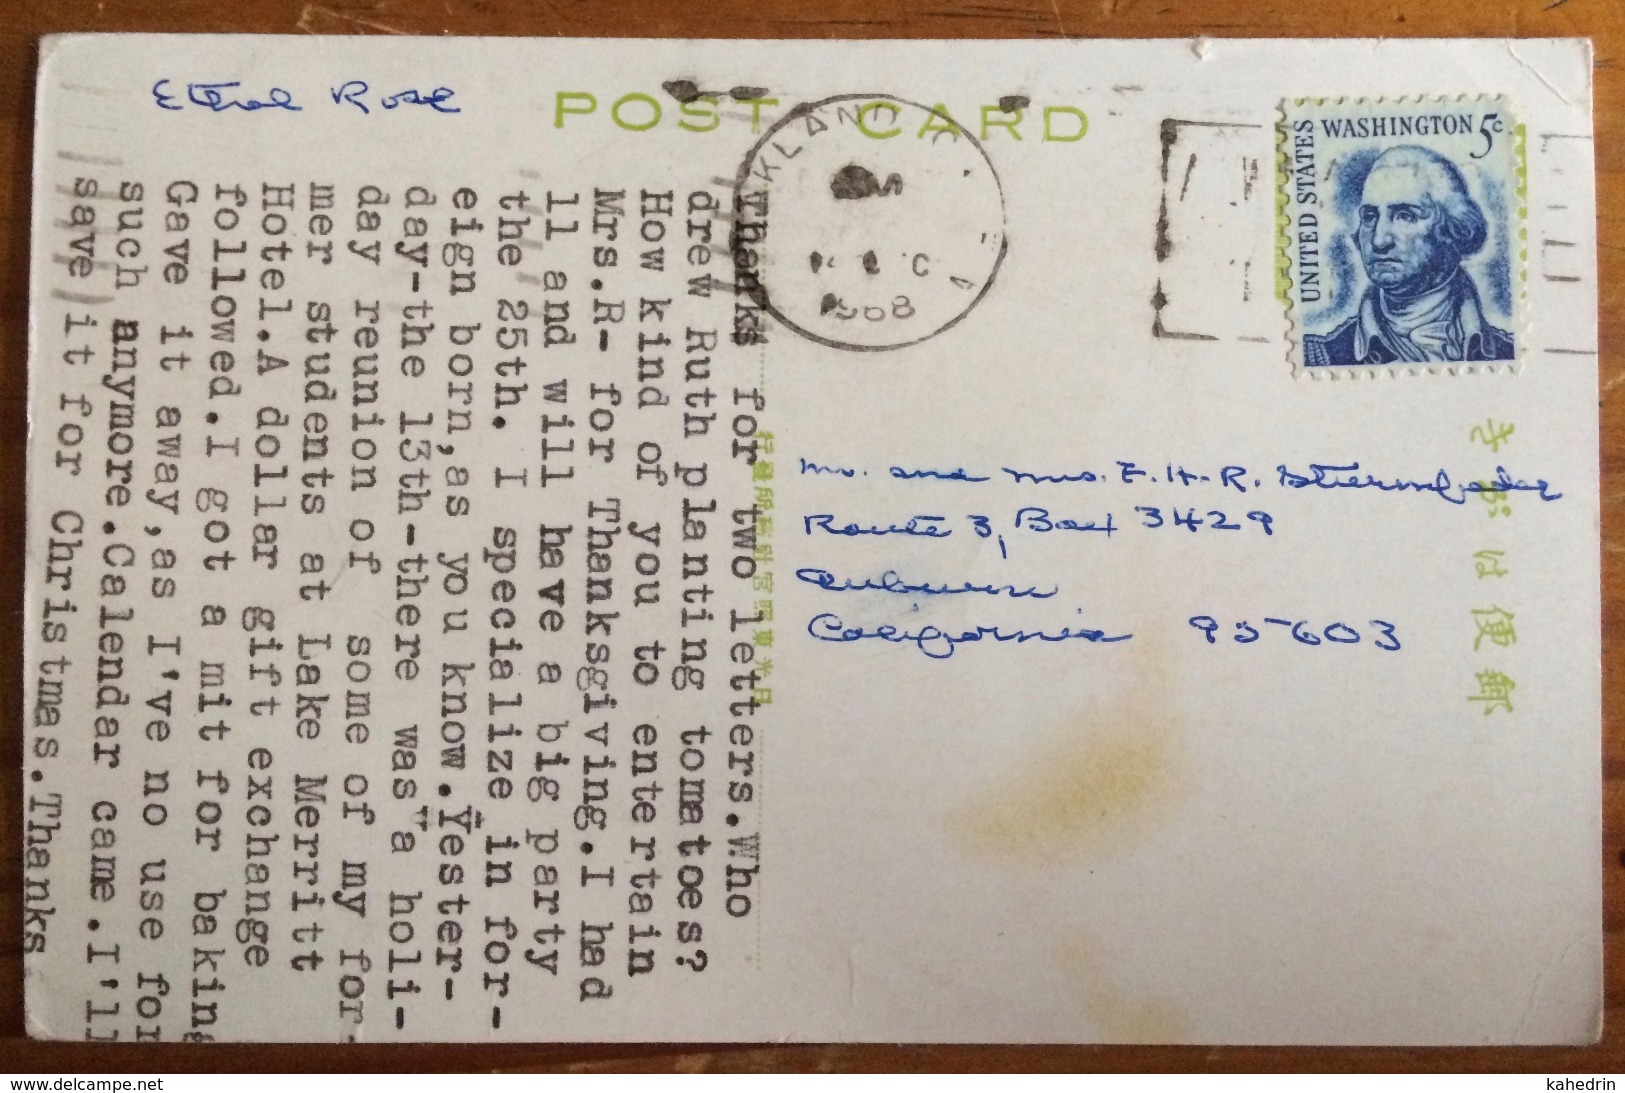 Ethel Rose
POST CARD
KLAND
WASHINGTON 5c
UNITED STATES
Thanks for two letters.Who
drew Ruth planting tomatoes?
How kind of you to entertain
Mrs.R- for Thanksgiving.I had
ll and will have a big party
the 25th. I specialize in for-
eign born,as you know.Yester-
day-the 13th-there was"a holi-
day reunion of some of my for-
mer students at Lake Merritt
Hotel.A dollar gift exchange
followed.I got a mit for baking
Gave it away,as I've no use for
such anymore.Calendar came.I'll
save it for Christmas.Thanks
Mr. and Mrs. E. H. R.
Route 3, Box 3429
Auburn
California 95603
便郵
delcampe.net
kahedrin